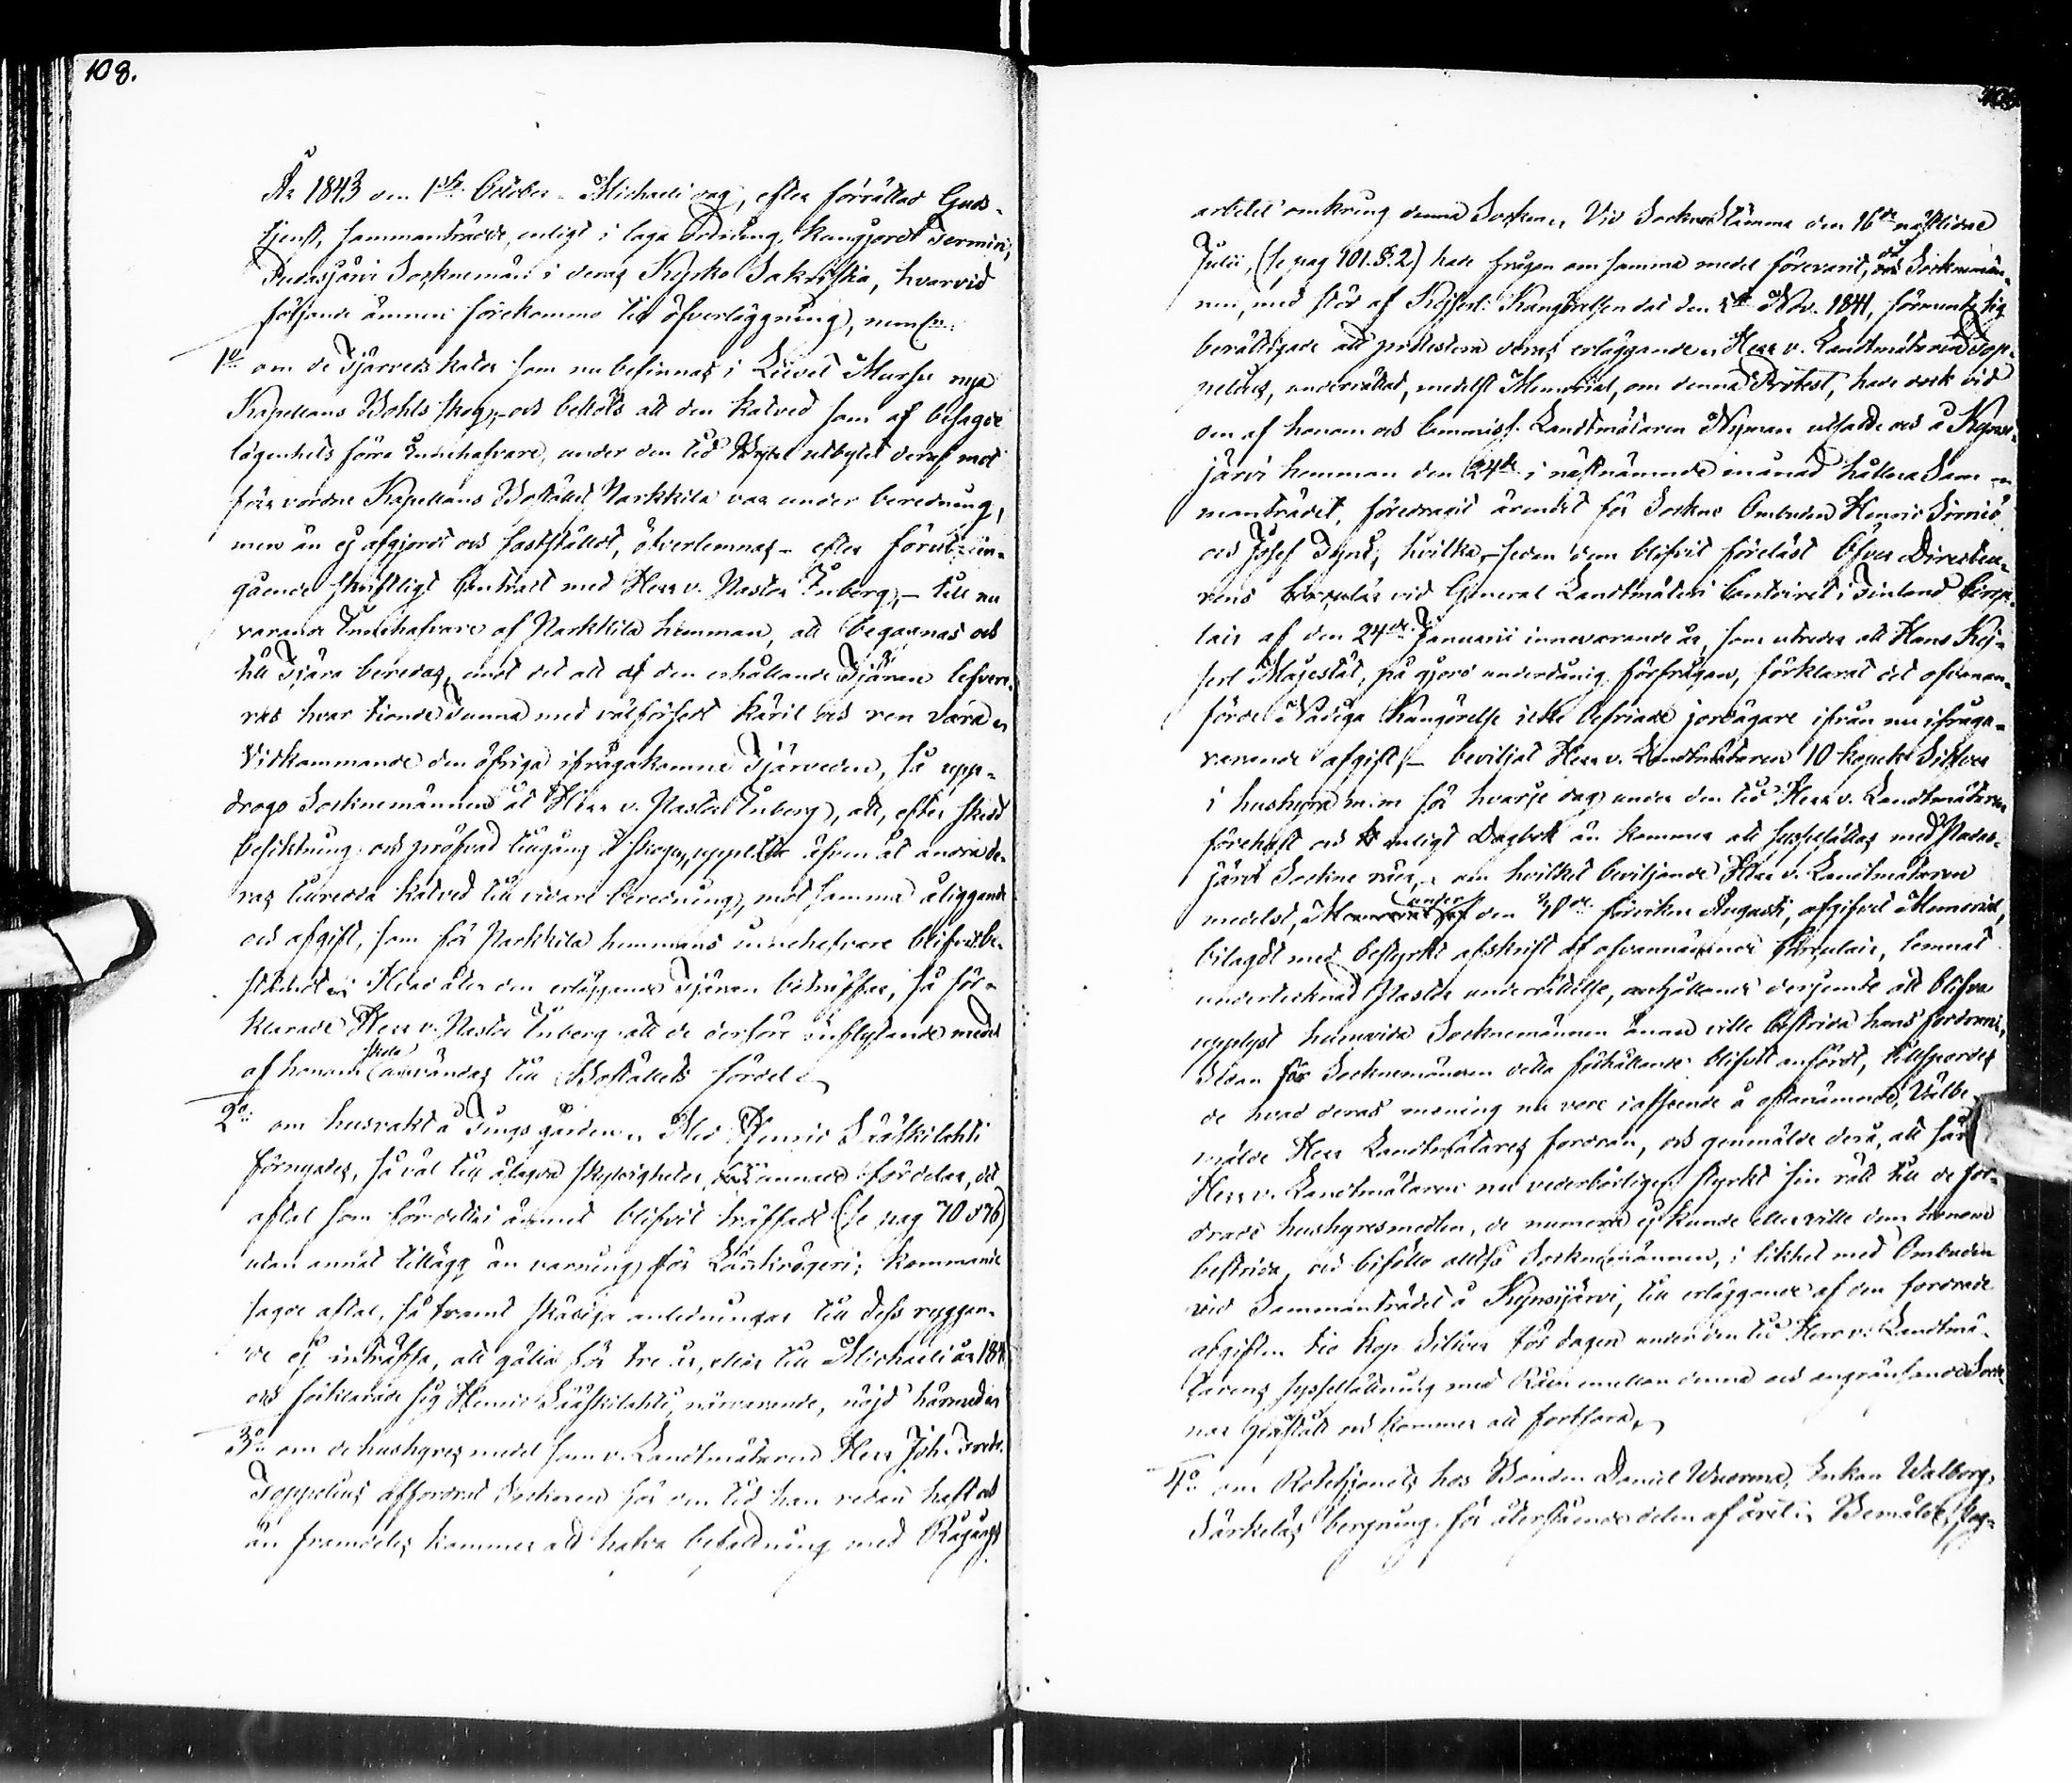 108.
År 1843 den 1ste October - Michaeli dag, efter förrättad Guds-
tjenst, sammanträdde, enligt i laga ordning kungjord Termin,
Pudasjärvi Socknemän i deras Kyrko Sakristia, hvarvid
följande ämnen förekommo till öfverläggning, neml:n
1o om de Tjärvedskatar som nu befinnas i Liivet Mursu nya
Kapellans Bohls skog, och beslöts att den katved som af besagde
lägenhets förra Innehafvare, under den tid utbytet deraf mot
förr vordne Kapellans Bostället Narkkila var under beredning,
men än ej afgjordt och fastställdt, öfverlemnas - efter förut in-
gående skriftligt Contract med Herr v. Pastor Enberg, - till nu
varande Innehafvare af Narkkila hemman, att begagnas och
till Tjära beredas, emot det att af den erhållande Tjäran lefvere-
ras hvar tionde Tunna med välförsedt käril och ren vara.
Vidkommande den öfriga ifrågakomne Tjärveden, så upp-
drogo Socknemännen åt Herr v. Pastor Enberg, att, efter skedd
besiktning och pröfvad tillgång å skogen, upplåta äfven åt andra de-
ras tillredda katved till vidare beredning, mot samma åliggande
och afgift, som för Narkkila hemmans innehafvare blifvit be-
stämdt. Hvad åter den erläggande Tjäran beträffar, så för-
klarade Herr v. Pastor Enberg att de derföre inflytande medel
af honom skola användas till Boställets fördel.
2o om husvakt å Tings gården. Med Henric Sääskilahti
förnyades, så väl till ålagda skyldigheter, som ämnade fördelar, det
aftal som för detta ämnet blifvit träffadt (se pag 70 & 76)
utan annat tillägg än varning för Lönkrögeri; kommande
sagde aftal, så framt skäliga anledningar till dess ryggan-
de ej inträffa, att gälla för tre år, eller till Michaeli år 184
och förklarade sig Henric Sääskilahti, närvarande, nöjd härmed.
3o om de hushyres medel som v. Landtmätaren Herr Joh. Fredr.
Toppelius affordrat Socknen för den tid han redan haft och
än framdeles kommer att hafva befattning med Rågångs
arbetet omkring denna Socken. Vid Sockne Stämma den 16de nästlidne
Julii, (se pag 101. §. 2) hade frågan om samma medel förevarit, då Socknemän-
nen, med stöd af Kejserl. Kungörelsen dat den 5te Nov. 1841, förment sig
berättigade att protestera deras erläggande. Herr v. Landtmätaren Top-
pelius, underrättad, medelst Memorial, om denna Protest, hade dock vid
den af honom och Commiss. Landtmätaren Nyman utsatte och å Kynsi-
järvi hemman den 24de i nästnämnde månad hållna Sam-
manträdet, föredragit ärendet för Sockne Ombuden Henric Sirniö
och Josef, hvilka, - sedan dem blifvit föreläst Öfver Directeu-
rens vid General Landtmäteri Contoiret i Finland Cirku-
lair af den 24de Januarii innevarande år, som utreder att Hans Kej-
serl Majestät, på gjord underdånig förfrågan, förklarat det ofvanan-
förde Nådiga Kungörelse icke befriade jordägare ifrån nu ifråga-
varande afgift, - beviljat Herr v. Landtmätaren 10 kopek Silfver
i hushyra m.m för hvarje dag under den tid Herr v. Landtmätaren
förehaft och enligt Dagbok än kommer att sysselsättas med Pudas-
järvi Sockne råer, om hvilket beviljande Herr v. Landtmätaren
medelst, under den 30de förvikne Augusti, afgifvet Memorial,
bilagdt med bestyrkt afskrift af ofvannämnde Cirkulair, lemnat
undertecknad Pastor underrättelse, anhållande derjemte att blifva
upplyst huruvida Socknemännen ännu ville bestrida hans fordran.
Sedan för Socknemännen detta förhållande blifvit anfördt, tillspordes
de hvad deras mening nu vore i afseende å oftanämnde, Välbe-
mälde Herr Landtmätares fordran, och genmälde derå, att då
Herr v. Landtmätaren nu vederbörligen styrkt sin rätt till de for-
drade hushyresmedlen, de numera ej kunde eller ville dem honom
bestrida, och biföllo alltså Socknemännen, i likhet med Ombuden
vid Sammanträdet å Kynsijärvi, till erläggande af den fordrade
afgiften tio kop. Silfver för dagen under den tid Herr v. Landtmä-
tarens sysselsättning med Råen emellan denna och angränsande Sock-
nar påstått och kommer att fortfara.
4o om Rotehjonets hos Bonden Daniel Wuorma, Enkan Walborg
Särkeläs bergning för återstående delen af året. Bemälde hjo-